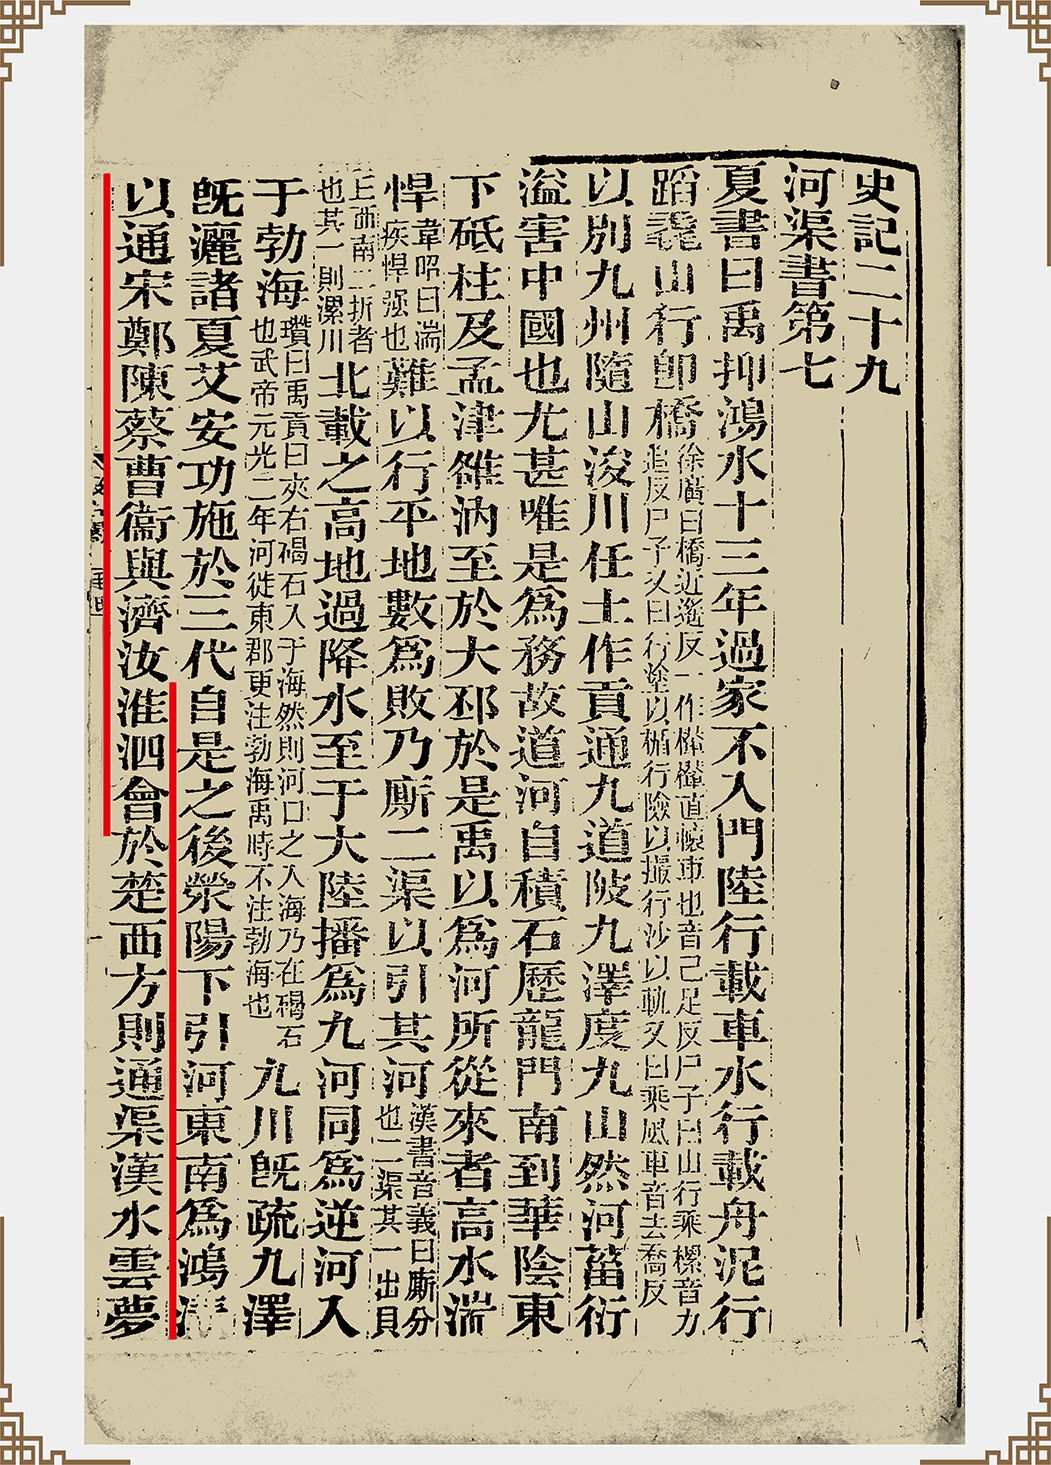 史記二十九
河渠書第七
夏書曰禹抑鴻水十三年過家不入門陸行載車水行載舟泥行
蹈毳山行卽橋徐廣曰橋近遙反一作檋檋直轅車也音己足反尸子曰山行乘樏音力追反尸子又曰行塗以楯行險以撮行沙以軌又曰乘風車音去喬反
以別九州隨山浚川任土作貢通九道陂九澤度九山然河菑衍
溢害中國也尤甚唯是爲務故道河自積石歷龍門南到華陰東
下砥柱及孟津雒汭至於大邳於是禹以爲河所從來者高水湍
悍韋昭曰湍疾悍强也難以行平地數爲敗乃廝二渠以引其河漢書音義曰廝分也二渠其一出貝
丘西南二折者也其一則漯川北載之高地過降水至于大陸播爲九河同爲逆河入
于勃海瓚曰禹貢曰夾右碣石入于海然則河口之入海乃在碣石也武帝元光二年河徙東郡更注勃海禹時不注勃海也九川旣疏九澤
旣灑諸夏艾安功施於三代自是之後滎陽下引河東南爲鴻溝
以通宋鄭陳蔡曹衞與濟汝淮泗會於楚西方則通渠漢水雲夢